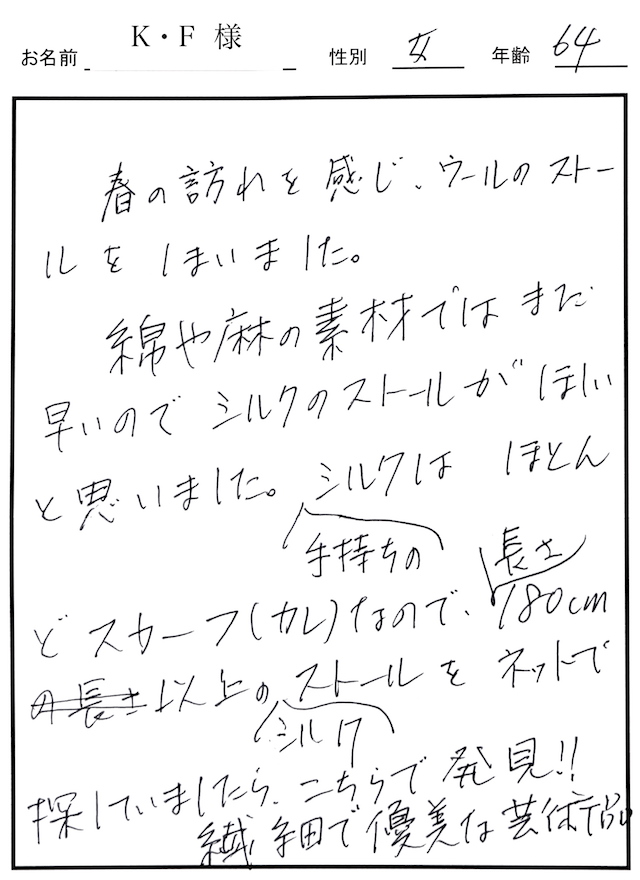 お名前 K・F 様 性別 女 年齢 64
春の訪れを感じ、ウールのストー
ルをしまいました。
綿や麻の素材ではまだ
早いのでシルクのストールがほしい
と思いました。シルクは ほとん
手持ちの 長さ
どスカーフ(カレ)なので、180cm
の長さ以上のストールをネットで
シルク
探していましたら、こちらで発見!!
繊細で優美な芸術品